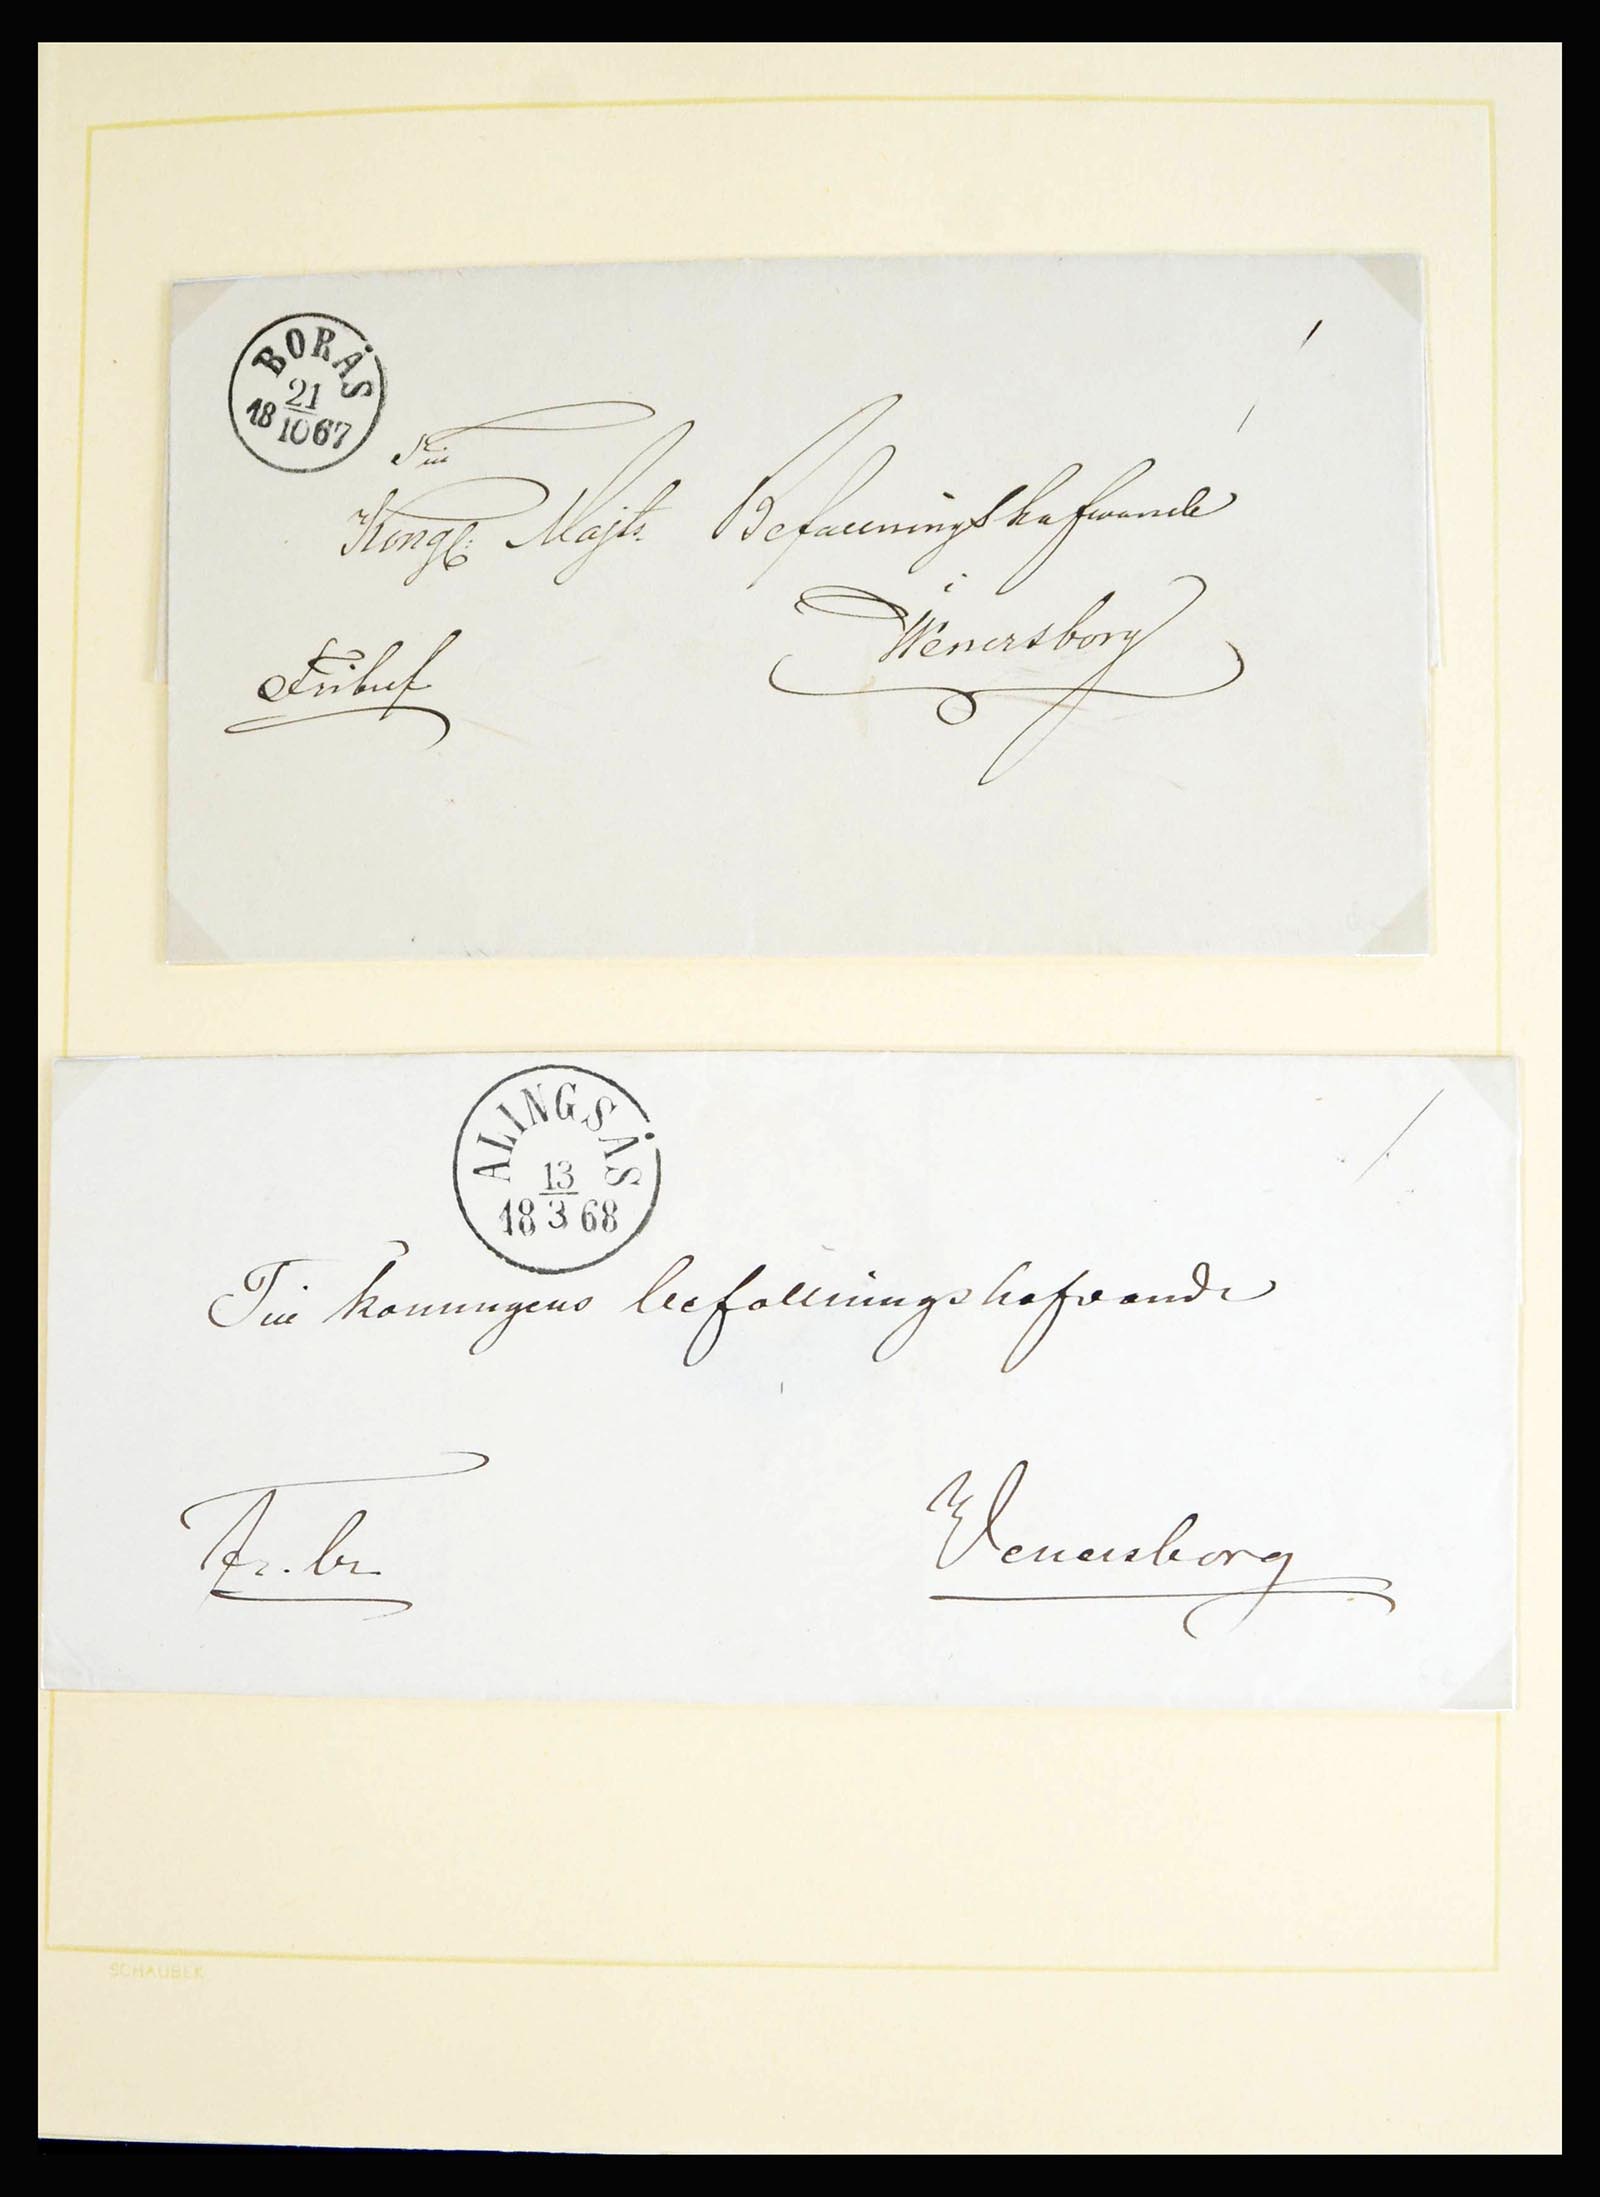 BORÅS
21
18 10 67
Till
Kongl: Majts Befallningshafwande
i
Wenersborg
Fribref
ALINGSÅS
13
18 3 68
Till konungens befallningshafvande
Fr. br.
Venersborg
SCHAUBEK